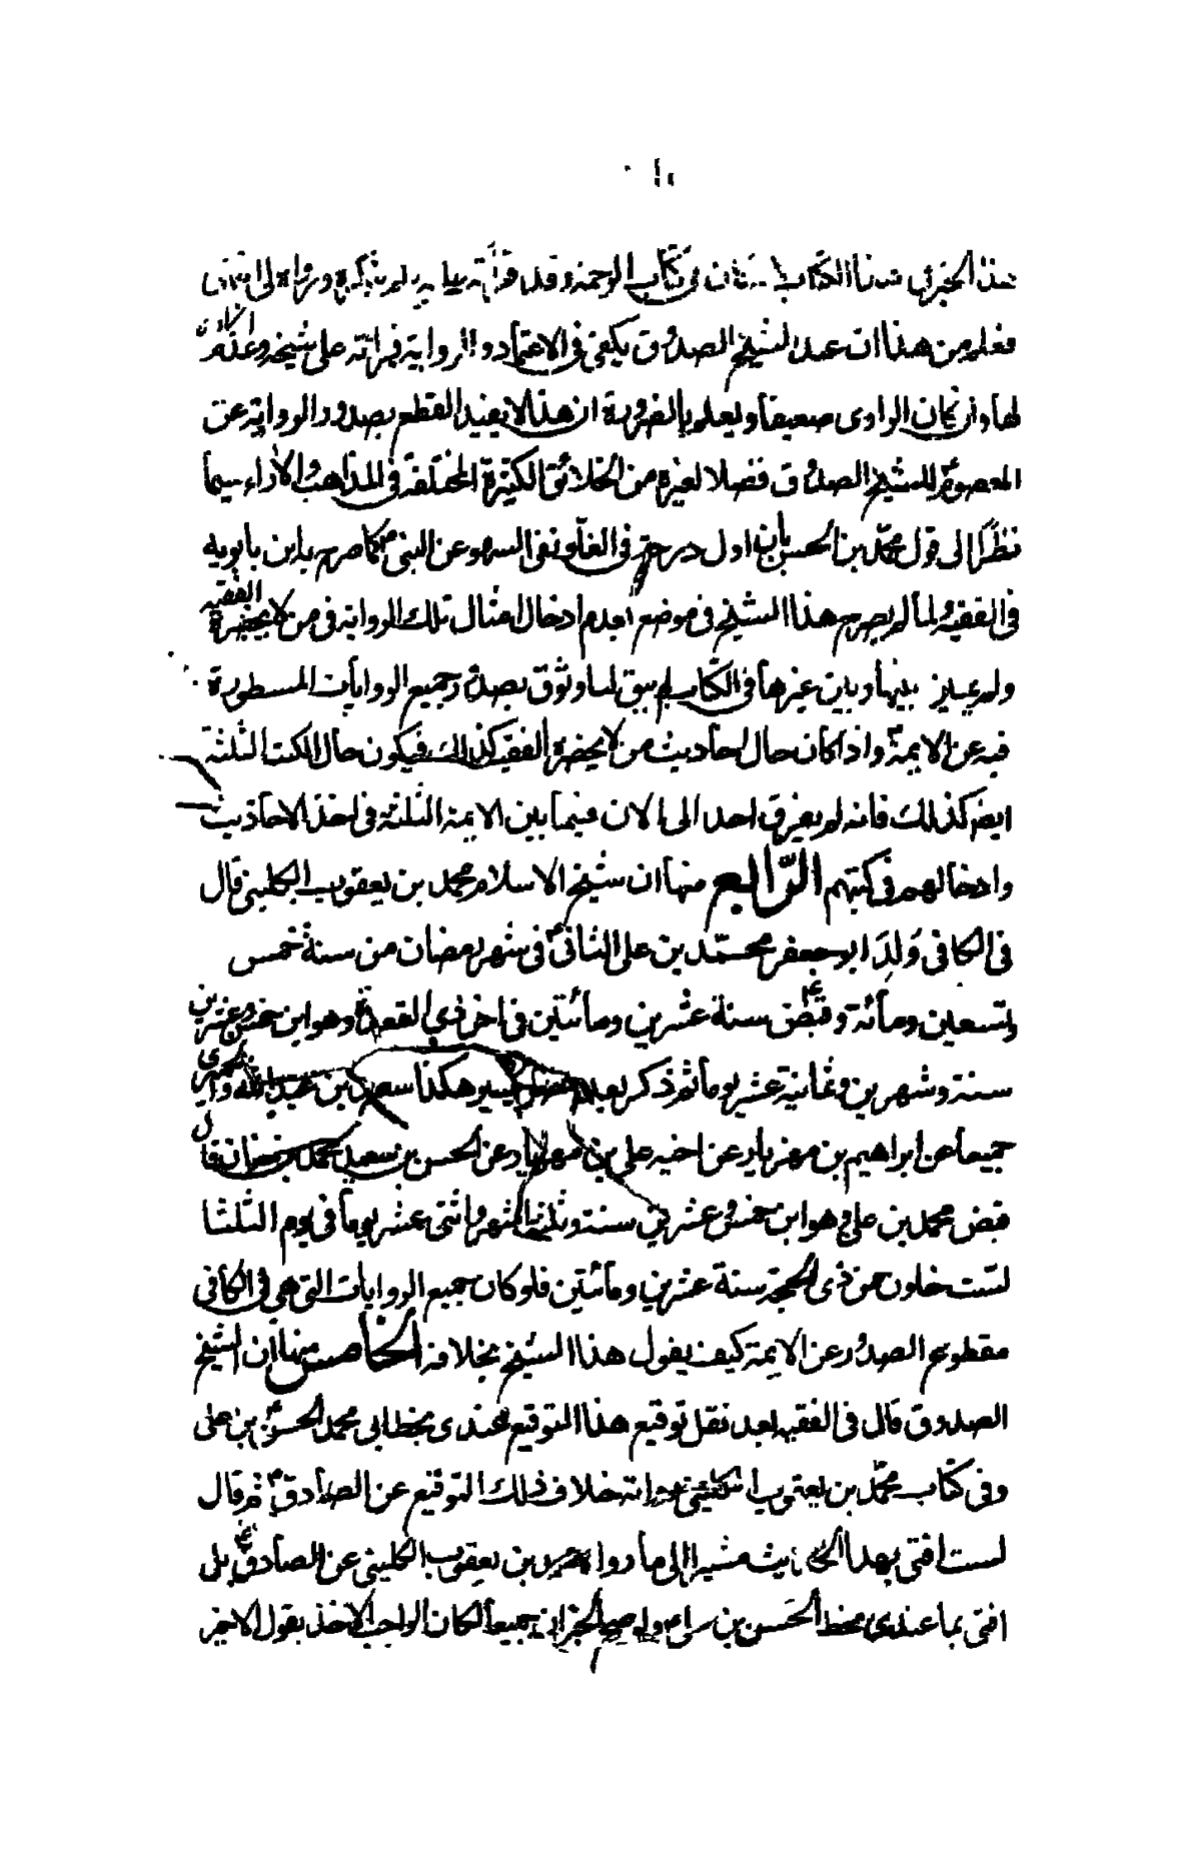 هذا الخبر في هذا الكتاب لانه كان في كتاب الرحمة وقد قرأته عليه فلم ينكره ورواه لى انتهى
فعلم من هذا ان عند الشيخ الصدوق يكفى فى الاعتماد والرواية قرائته على شيخه وعدم انكاره
لها وان كان الراوى ضعيفا ويعلم بالضرورة ان هذا لا يفيد القطع بصدور الرواية عن
المعصوم للشيخ الصدوق فضلا لغيره من الخلائق الكثيرة المختلفة فى المذاهب والآراء سيما
نظرا الى قول محمد بن الحسن بان اول درجة فى الغلو نفى السهو عن النبى كما صرح به ابن بابويه
فى الفقيه لما لم يصرح هذا الشيخ فى موضع بعدم ادخال امثال تلك الرواية فى من لا يحضره الفقيه
ولم يميز بينها وبين غيرها فى الكتاب لم يبق لنا وثوق بصدور جميع الروايات المسطورة
فيه عن الايمة واذا كان حال احاديث من لا يحضره الفقيه كذلك فيكون حال الكتب الثلثة
ايضا كذلك فانه لم يفرق احد الى الان فيما بين الايمة الثلثة فى اخذ الاحاديث
وادخالهم فى كتبهم الرّابع منها ان شيخ الاسلام محمد بن يعقوب الكلينى قال
فى الكافى وُلِدَ ابو جعفر محمّد بن على الثانى فى شهر رمضان من سنة خمس
وتسعين ومائة وقبض سنة عشرين ومائتين فى اخر ذى القعدة وهو ابن خمس وعشرين
سنة وشهرين وثمانية عشر يوما ثم ذكر بعد فصل يسير هكذا سعد بن عبد الله والحميرى
جميعا عن ابراهيم بن مهزيار عن اخيه على بن مهزيار عن الحسن بن سعيد محمد بن سنان قال
قبض محمد بن على وهو ابن خمس وعشرين سنة وثلثة اشهر واثنى عشر يوما فى يوم الثلثا
لست خلون من ذى الحجة سنة عشرين ومائتين فلو كان جميع الروايات التى هى فى الكافى
مقطوع الصدور عن الايمة كيف يقول هذا الشيخ بخلافه الخامس منها ان الشيخ
الصدوق قال فى الفقيه بعد نقل توقيع هذا التوقيع عندى بخط ابى محمد الحسن بن على
وفى كتاب محمّد بن يعقوب الكلينى رواية خلاف ذلك التوقيع عن الصادق ثم قال
لست افتى بهذا الحديث مشيرا الى ما رواه محمد بن يعقوب الكلينى عن الصادق بل
افتى بما عندى بخط الحسن بن على ولو صح الخبران جميعا لكان الواجب الاخذ بقول الاخير